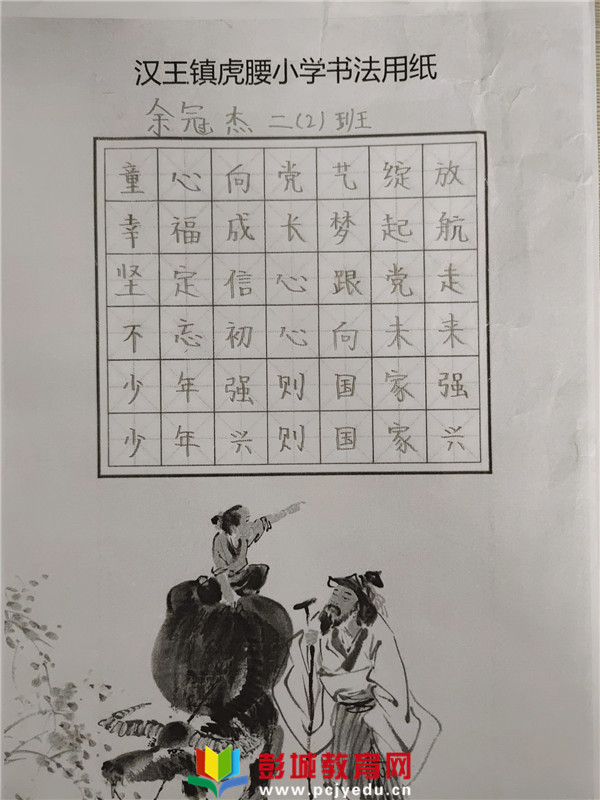 汉王镇虎腰小学书法用纸
余冠杰 二(2)班
童心向党艺绽放
幸福成长梦起航
坚定信心跟党走
不忘初心向未来
少年强则国家强
少年兴则国家兴
彭城教育网
www.pcjyedu.cn